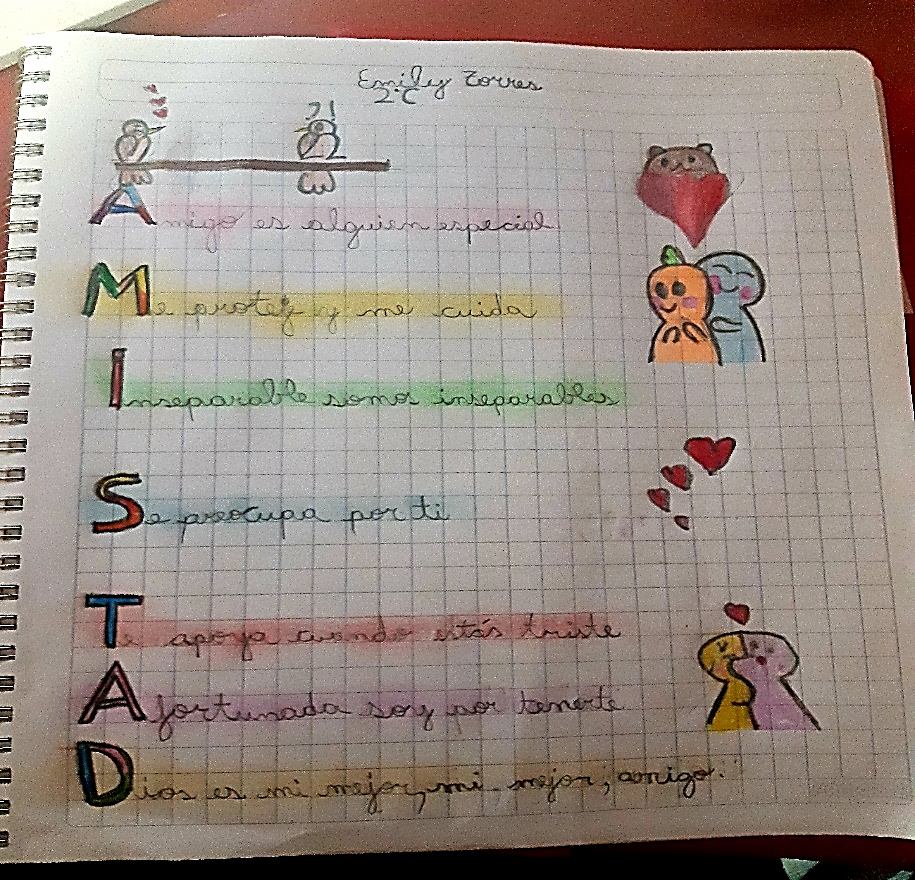 Emily Torres
2°C
?!
Amigo es alguien especial
Me proteg y me cuida
Inseparable somos inseparables
Se preocupa por ti
Te apoya cuando estás triste
Afortunada soy por tenerte
Dios es mi mejor, mi mejor, amigo.